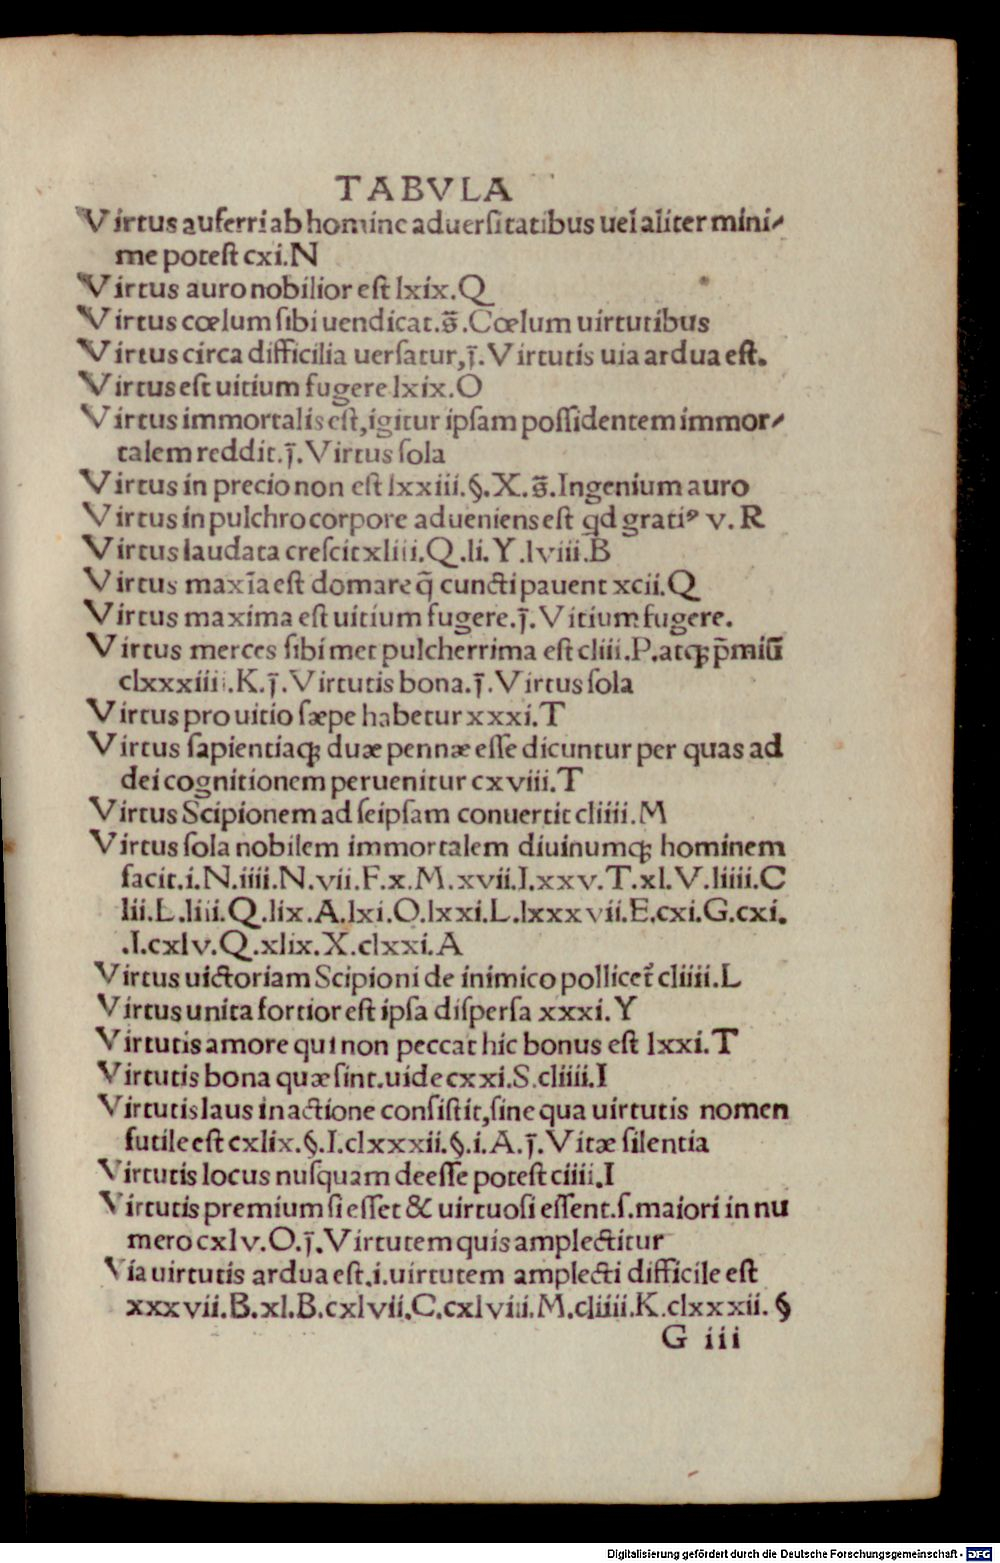 TABVLA
Virtus auferri ab homine aduersitatibus uel aliter mini⸗
me potest cxi.N
Virtus auro nobilior est lxix.Q
Virtus cœlum sibi uendicat.s̄.Cœlum uirtutibus
Virtus circa difficilia uersatur,j̄.Virtutis uia ardua est.
Virtus est uitium fugere lxix.O
Virtus immortalis est,igitur ipsam possidentem immor⸗
talem reddit.j̄.Virtus sola
Virtus in precio non est lxxiii.§.X.s̄.Ingenium auro
Virtus in pulchro corpore adueniens est qd gratiꝰ v.R
Virtus laudata crescit xliii.Q.li.Y.lviii.B
Virtus maxīa est domare q̄ cuncti pauent xcii.Q
Virtus maxima est uitium fugere.j̄.Vitium fugere.
Virtus merces sibimet pulcherrima est cliii.P.atqꝫ p̄miū
clxxxiiii.K.j̄.Virtutis bona.j̄.Virtus sola
Virtus pro uitio sæpe habetur xxxi.T
Virtus sapientiaqꝫ duæ pennæ esse dicuntur per quas ad
dei cognitionem peruenitur cxviii.T
Virtus Scipionem ad seipsam conuertit cliiii.M
Virtus sola nobilem immortalem diuinumqꝫ hominem
facit.i.N.iiii.N.vii.F.x.M.xvii.I.xxv.T.xl.V.liiii.C
lii.L.liii.Q.lix.A.lxi.O.lxxi.L.lxxxvii.E.cxi.G.cxi.
.I.cxlv.Q.xlix.X.clxxi.A
Virtus uictoriam Scipioni de inimico pollicet᷑ cliiii.L
Virtus unita fortior est ipsa dispersa xxxi.Y
Virtutis amore qui non peccat hic bonus est lxxi.T
Virtutis bona quæ sint.uide cxxi.S.cliiii.I
Virtutis laus in actione consistit,sine qua uirtutis nomen
futile est cxlix.§.I.clxxxii.§.i.A.j̄.Vitæ silentia
Virtutis locus nusquam deesse potest ciiii.I
Virtutis premium si esset & uirtuosi essent.s.maiori in nu
mero cxlv.O.j̄.Virtutem quis amplectitur
Via uirtutis ardua est.i.uirtutem amplecti difficile est
xxxvii.B.xl.B.cxlvii.C.cxlviii.M.cliiii.K.clxxxii.§
G iii
Digitalisierung gefördert durch die Deutsche Forschungsgemeinschaft - DFG